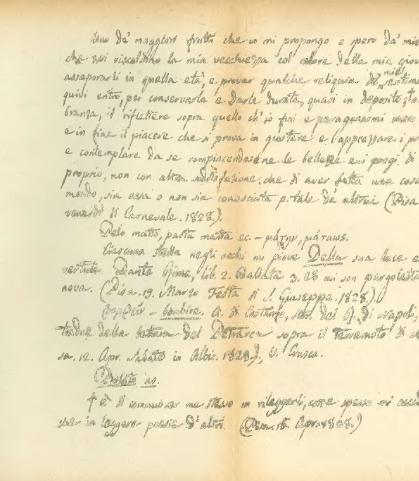 Uno de' maggiori frutti che io mi propongo e spero da' miei
che essi riscaldino la mia vecchiezza col calore della mia giov
assaporarli in quella età, e provar qualche reliquia de' miei sentime
quivi entro, per conservarla e darle durata, quasi in deposito;
branza, il riflettere sopra quello ch'io fui e paragonarmi meco
e in fine il piacere che si prova in gustare e apprezzare i pro
e contemplare da se compiacendosene le bellezze e i pregi di
proprio, non con altra soddisfazione, che di aver fatta una cosa
mondo, sia essa o non sia conosciuta p. tale da altrui (Pisa.
venerdì di Carnevale. 1828.).
Pelo matto, patta matta ec. - μάτην, μάταιος.
Ciascuna stella negli occhi mi piove Della sua luce e
vertute. Dante Rime, lib. 2. Ballata 3. 
nova. (Pisa. 19. Marzo. Festa di S. Giuseppe. 1828.).
A. di Costanzo, Stor. del R. di Napoli,
della lettera del Petrarca sopra il terremoto di
sa. 12. Apr. Sabato in Albis. 1828.). V. Crusca.
in rileggerli, come spesso mi
in leggere poesie d'altri. (Pisa. 15. Apr. 1828.)